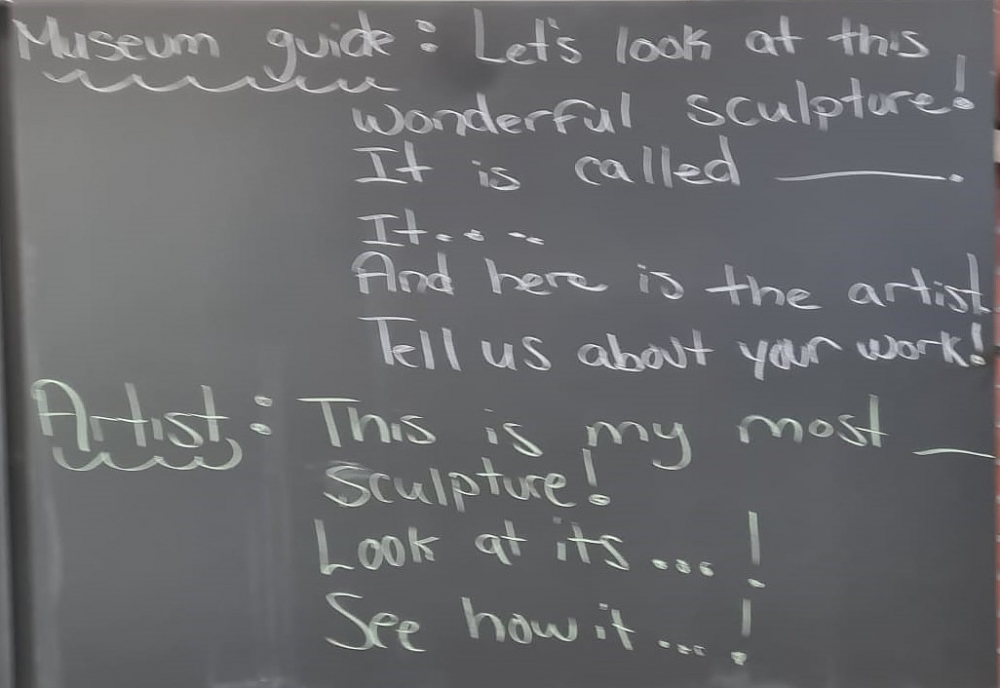 Museum guide: Let's look at this
wonderful sculpture!
It is called ______.
It....
And here is the artist
Tell us about your work!
Artist: This is my most __
sculpture!
Look at its...!
See how it...!